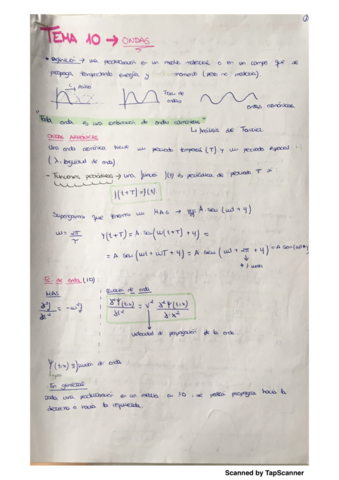 TEMA 10 → ONDAS
• Definición → una perturbación en un medio material o en un campo que se
propaga transportando energía y momento (pero no materia)
Pulso
Tren de
ondas
ondas armónicas
"Toda onda es una combinación de ondas armónicas"
↳ Análisis de Fourier
ONDAS ARMÓNICAS
Una onda armónica tiene un periodo temporal (T) y un periodo espacial
(λ, longitud de onda)
- Funciones periódicas → una función f(t) es periódica de periodo T =
f(t+T) = f(t)
Supongamos que tenemos un M.A.S → A·sen(ωt+φ)
ω = 2π/T y(t+T) = A·sen(ω(t+T)+φ) =
= A·sen(ωt+ωT+φ) = A·sen(ωt+2π+φ) = A sen(ωt+φ)
Ec. de onda (1D)
MAS
Ecuación de onda
velocidad de propagación de la onda
Ψ(t,x) función de onda
En general
cada una perturbación en un medio en 1D, se podrá propagar hacia la
derecha o hacia la izquierda.
Scanned by TapScanner